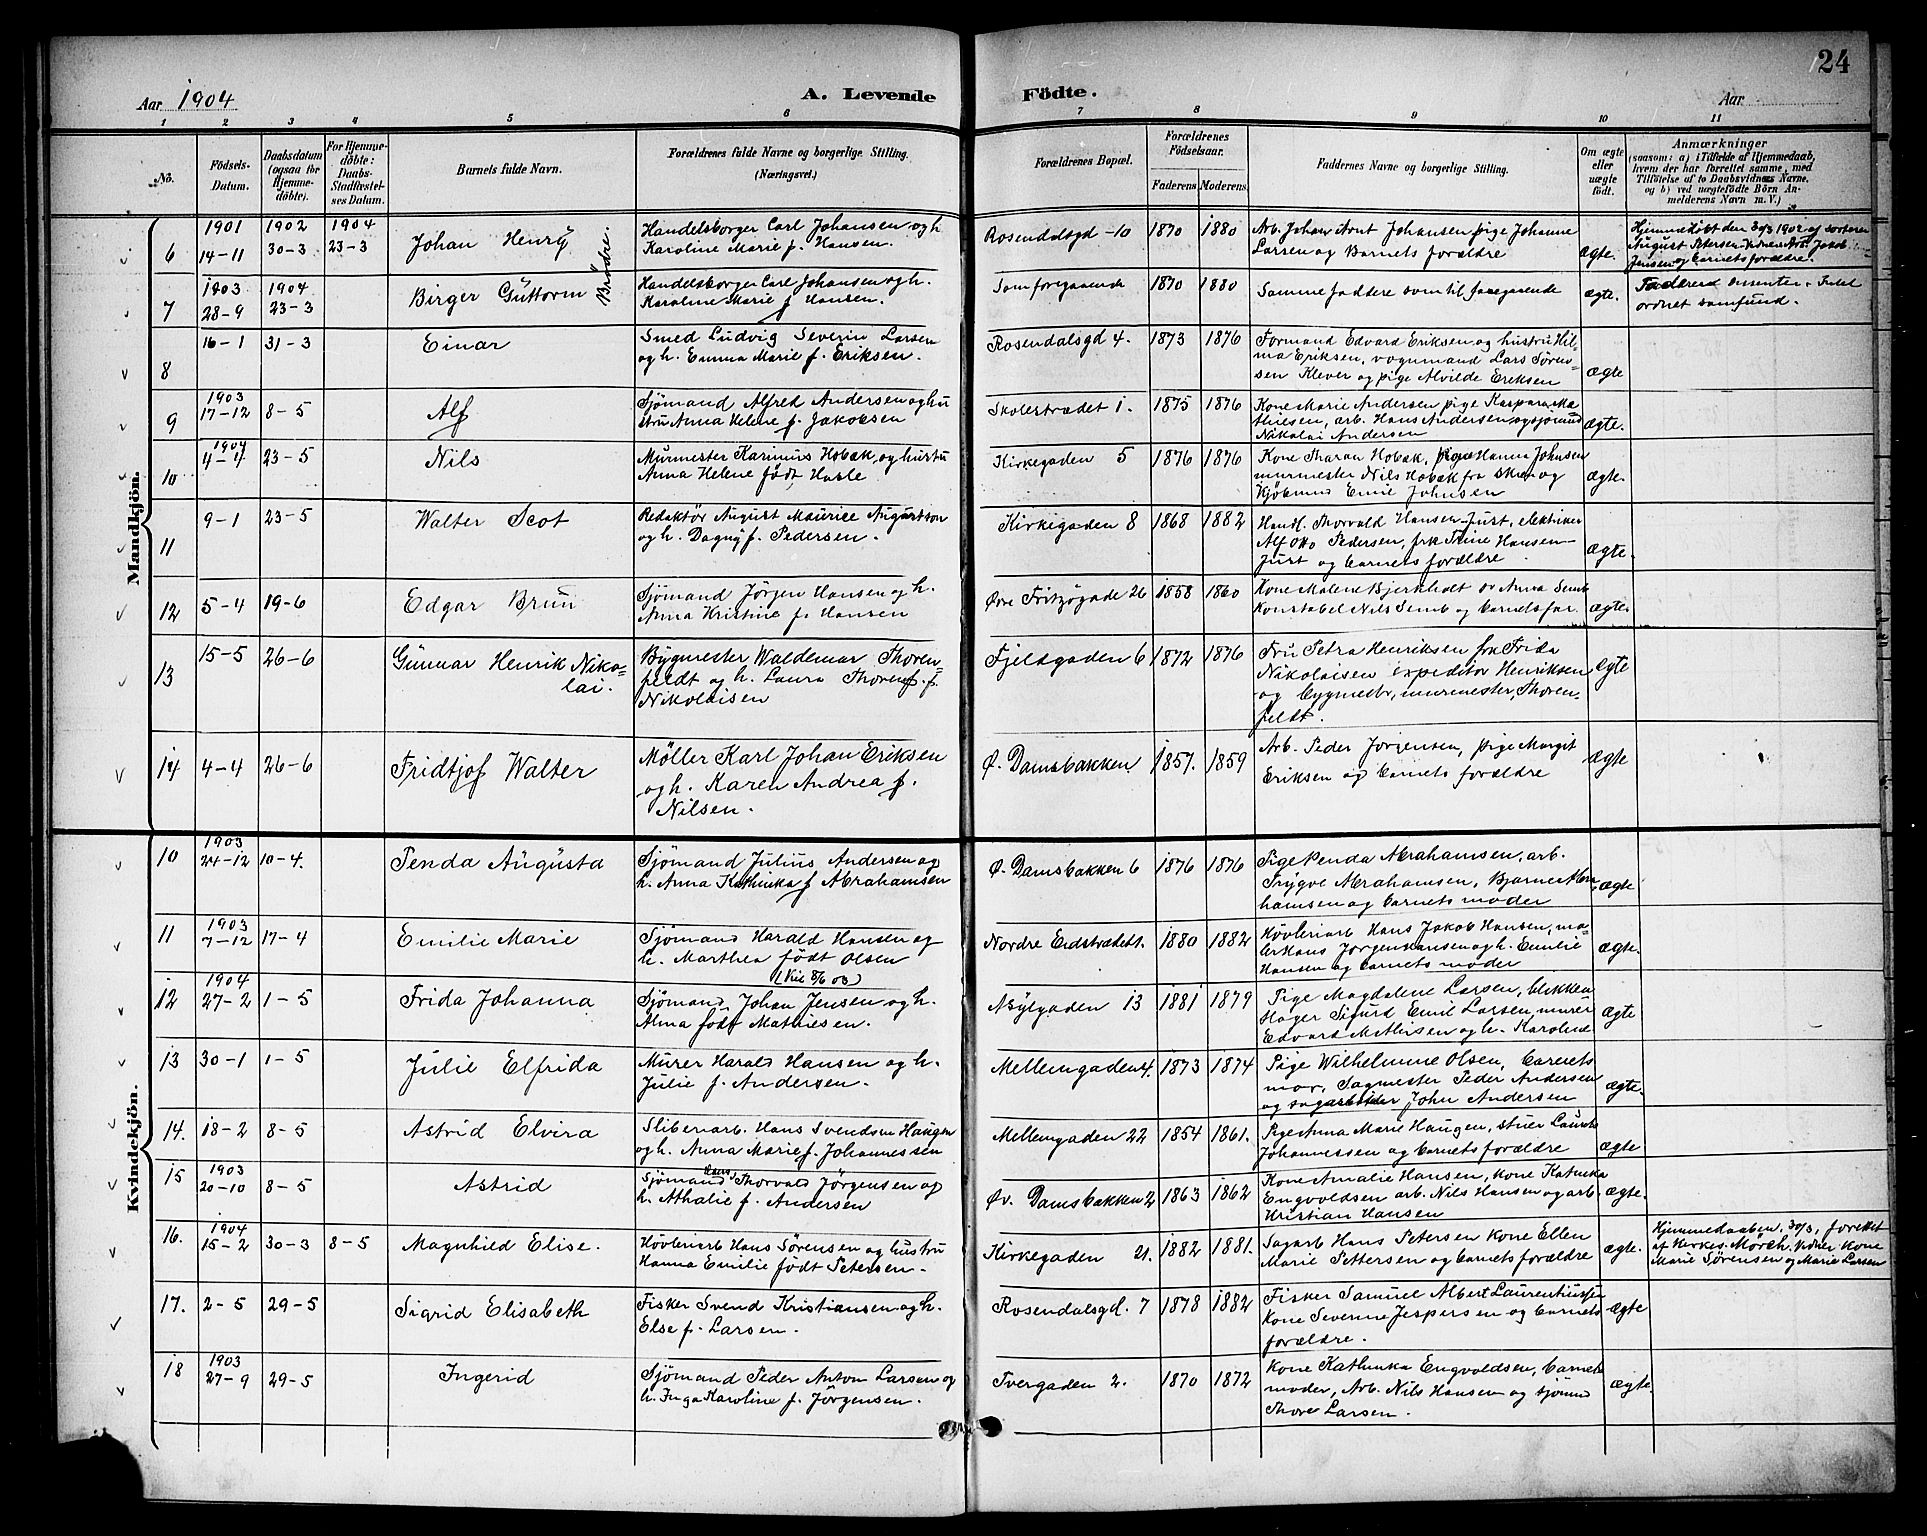 24
Aar 1904
A. Levende Födte.
Aar
1 2 3 4 5 6 7 8 9 10 11
No.
Födsels-Datum.
Daabsdatum (ogsaa for Hjemmedöbte).
For Hjemmedöbte: Daabs-Stadfæstelses Datum.
Barnets fulde Navn.
Forældrenes fulde Navne og borgerlige Stilling. (Næringsvei.)
Forældrenes Bopæl.
Forældrenes Födselsaar.
Faderens. Moderens.
Faddernes Navne og borgerlige Stilling.
Om ægte eller uægte født.
Anmærkninger (saasom: a) i Tilfælde af Hjemmedaab, hvem der har forrettet samme, med Tilföielse af to Daabsvidners Navne, og b) ved uægtefödte Börn Anmelderens Navn m. V.)
Mandkjön.
6 1901 14-11 1902 30-3 1904 23-3 Johan Henry Brødre. Handelsborger Carl Johansen og h. Karoline Marie f. Hansen. Rosendalsgd-10 1870 1880 Arb. Johan Arnt Johansen pige Johanne Larsen og Barnets forældre ægte. Hjemmedøbt den 30/3 1902 af August Petersen Vidner Arb. Jakob Jensen og barnets forældre.
7 1903 28-9 1904 23-3 Birger Guttorm Handelsborger Carl Johansen og h. Karoline Marie f Hansen. Som foregaaende 1870 1880 Samme faddere som til foregaaende ægte. Faderen dissenter. Intet ordnet samfund.
8 16-1 31-3 Einar Smed Ludvig Severin Larsen og h. Emma Marie f. Eriksen. Rosendalsgd 4. 1873 1876 Formand Edvard Eriksen og hustru Hilma Eriksen, vognmand Lars Sørensen Klever og pige Alvilde Eriksen ægte
9 1903 17-12 8-5 Alf Sjömand Alfred Andersen og hustru Anna Helene f. Jakobsen Skolestrædet 1. 1875 1876 Kone Marie Andersen pige Kaspara Mathiesen, arb. Hans Andersen og sjömand Nikolai Andersen ægte.
10 1904 4-4 23-5 Nils Murmester Karinius Hobæk, og hustru Anna Helene født Hasle Kirkegaden 5 1876 1876 Kone Tharan Hobæk, pige Hanna Johnsen murmester Nils Hobæk fra Skien og Kjöbmand Emil Johnsen ægte.
11 9-1 23-5 Walter Scot Redaktör August Maurice Augustson og h. Dagny f. Pedersen. Kirkegaden 8 1868 1882 Handl. Thorvald Hansen-Just, elektriker Alf Otto Pedersen, frk Trine Hansen-Just og barnets forældre. ægte.
12 5-4 19-6 Edgar Brun Sjömand Jörgen Hansen og h. Anna Kristine f. Hansen Øvre Fritzögade 26 1858 1860 Kone Malene Bjerkholdt Anna Semb Konstabel Nils Semb og barnets far. ægte.
13 15-5 26-6 Gunnar Henrik Nikolai. Bygmester Waldemar Thorenfeldt og h. Laura Thorenf. f. Nikolaisen Fjeldgaden 6 1872 1876 Fru Petra Henriksen frk Frida Nikolaisen expeditör Henriksen og bygmestr, murmester, Thorenfeldt. ægte
14 4-4 26-6 Fridtjof Walter Møller Karl Johan Eriksen og h. Karen Andrea f. Nilsen. Ø. Damsbakken 1857. 1859 Arb. Peder Jorgensen, pige Margit Eriksen og barnets forældre ægte
Kvindekjön.
10 1903 24-12 10-4. Penda Augusta Sjömand Julius Andersen og h. Anna Kathinka f Abrahamsen Ø. Damsbakken 6 1876 1876 Pige Penda Abrahamsen, arb. Trygve Abrahamsen, Bjarne Abrahamsen og barnets moder ægte
11 1903 7-12 17-4 Emilie Marie Sjömand Harald Hansen og h. Marthea født Olsen (Vie 8/6 03) Nordre Eidstrædet 1. 1880 1882 Høvleriarb Hans Jakob Hansen, maler Hans Jørgen Hansen og h. Emilie Hansen og barnets moder ægte.
12 1904 27-2 1-5 Frida Johanna Sjömand Johan Jensen og h. Alma født Mathiesen. Nbylgaden 13 1881 1879 Pige Magdalene Larsen, blikkenslager Sigurd Emil Larsen, murer Edvard Mathisen og h. Karoline ægte
13 30-1 1-5 Julie Elfrida Murer Harald Hansen og h. Julie f. Andersen. Mellemgaden 4. 1873 1874 Pige Wilhelmine Olsen, barnets mor, Sagmester Peder Andersen og sagarbeider John Andersen ægte.
14. 18-2 8-5 Astrid Elvira Sliberiarb. Hans Svendsen Haugen og h. Anna Marie f. Johannessen Mellemgaden 22 1854 1861. Pige Anna Marie Haugen, Johannessen og barnets forældre ægte
15 1903 20-10 8-5 Astrid Sjömand Hans Thorvald Jörgensen og h. Athalie f. Andersen Øv. Damsbakken 2 1863 1862 Kone Amalie Hansen, kone Katinka Engvoldsen arb. Nils Hansen og arb. Kristian Hansen ægte.
16. 1904 15-2 30-3 8-5 Magnhild Elise. Høvleriarb Hans Sørensen og hustru Hanna Emilie født Petersen. Kirkegaden 21. 1882 1881. Sagarb Hans Petersen Kone Ellen Marie Pettersen og barnets forældre ægte. Hjemmedaaben, 30/3, forettet af Kirkes. Mörch. Vidner Kone Marie Sørensen og Marie Larsen
17. 2-5 29-5 Sigrid Elisabeth Fisker Svend Kristiansen og h. Else f. Larsen. Rosendalsgd. 7 1878 1882 Fisker Samuel Albert Laurenthussen Kone Severine Jespersen og barnets forældre. ægte
18 1903 27-9 29-5 Ingerid Sjömand Peder Anton Larsen og h. Inga Karoline f. Jörgensen. Tvergaden 2. 1870 1872 Kone Kathinka Engvoldsen, barnets moder, Arb. Nils Hansen og sjömand Thore Larsen. ægte.